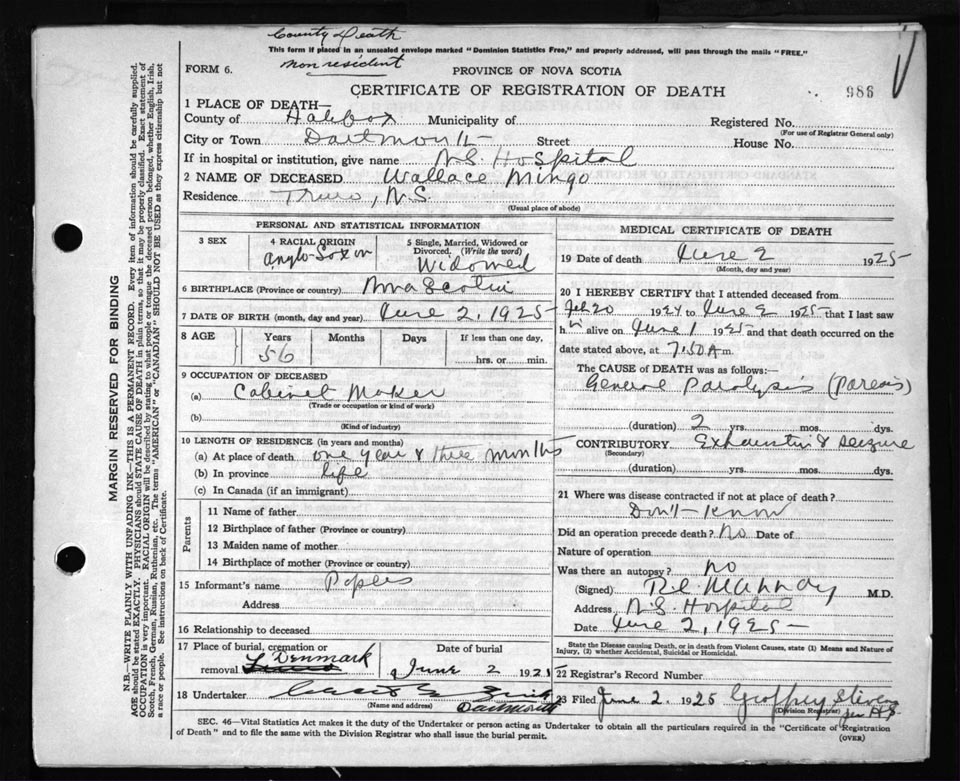 County Death
This form if placed in an unsealed envelope marked "Dominion Statistics Free," and properly addressed, will pass through the mails "FREE."
non resident
FORM 6.
PROVINCE OF NOVA SCOTIA
CERTIFICATE OF REGISTRATION OF DEATH
986
1 PLACE OF DEATH—
County of Halifax Municipality of Registered No.
(For use of Registrar General only)
City or Town Dartmouth Street House No.
If in hospital or institution, give name N.S. Hospital
2 NAME OF DECEASED Wallace Mingo
Residence Truro, N.S.
(Usual place of abode)
PERSONAL AND STATISTICAL INFORMATION
3 SEX
4 RACIAL ORIGIN
Anglo Saxon
5 Single, Married, Widowed or
Divorced. (Write the word)
Widowed
6 BIRTHPLACE (Province or country) Nova Scotia
7 DATE OF BIRTH (month, day and year) June 2, 1925
8 AGE
Years
56
Months
Days
If less than one day,
hrs. or min.
9 OCCUPATION OF DECEASED
(a) Cabinet Maker
(Trade or occupation or kind of work)
(b)
(Kind of industry)
10 LENGTH OF RESIDENCE (in years and months)
(a) At place of death one year & three months
(b) In province life
(c) In Canada (if an immigrant)
Parents
11 Name of father
12 Birthplace of father (Province or country)
13 Maiden name of mother
14 Birthplace of mother (Province or country)
15 Informant's name
Address
16 Relationship to deceased
17 Place of burial, cremation or
removal Denmark
Date of burial
June 2 1925
18 Undertaker
(Name and address) Dartmouth
MEDICAL CERTIFICATE OF DEATH
19 Date of death June 2 1925
(Month, day and year)
20 I HEREBY CERTIFY that I attended deceased from
Feb 20 1924 to June 2 1925 that I last saw
h alive on June 1 1925 and that death occurred on the
date stated above, at 7.50 A m.
The CAUSE of DEATH was as follows:
General Paralysis (Paresis)
(duration) 2 yrs. mos. dys.
CONTRIBUTORY Exhaustion & Seizure
(Secondary)
(duration) yrs. mos. dys.
21 Where was disease contracted if not at place of death?
Don't know
Did an operation precede death? No Date of
Nature of operation
Was there an autopsy? no
(Signed) M.D.
Address N.S. Hospital
Date June 2, 1925
State the Disease causing Death, or in death from Violent Causes, state (1) Means and Nature of
Injury, (2) whether Accidental, Suicidal or Homicidal.
22 Registrar's Record Number
23 Filed June 2 1925 Geoffrey Stevens
(Division Registrar)
SEC. 46—Vital Statistics Act makes it the duty of the Undertaker or person acting as Undertaker to obtain all the particulars required in the "Certificate of Registration
of Death" and to file the same with the Division Registrar who shall issue the burial permit.
(OVER)
MARGIN RESERVED FOR BINDING
N.B.—WRITE PLAINLY WITH UNFADING INK—THIS IS A PERMANENT RECORD. Every item of information should be carefully supplied.
AGE should be stated EXACTLY. PHYSICIANS should STATE CAUSE OF DEATH in plain terms, so that it may be properly classified. Exact statement of
OCCUPATION is very important. RACIAL ORIGIN will be described by stating to what people or tongue the deceased person belonged, whether English, Irish,
Scotch, French, German, Russian, Ruthenian, etc. The terms "AMERICAN" or "CANADIAN" SHOULD NOT BE USED as they express citizenship but not
a race or people. See instructions on back of Certificate.